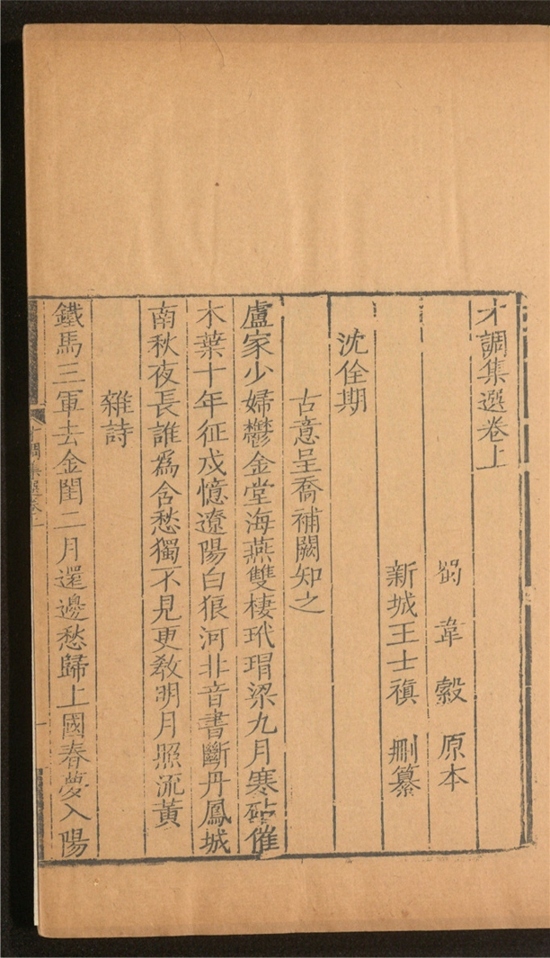 才調集選卷上
蜀韋縠原本
新城王士禛刪纂
沈佺期
古意呈喬補闕知之
盧家少婦鬱金堂海燕雙棲玳瑁梁九月寒砧催
木葉十年征戍憶遼陽白狼河北音書斷丹鳳城
南秋夜長誰爲含愁獨不見更敎明月照流黃
雜詩
鐵馬三軍去金閨二月還邊愁歸上國春夢入陽
才調集選卷上
一